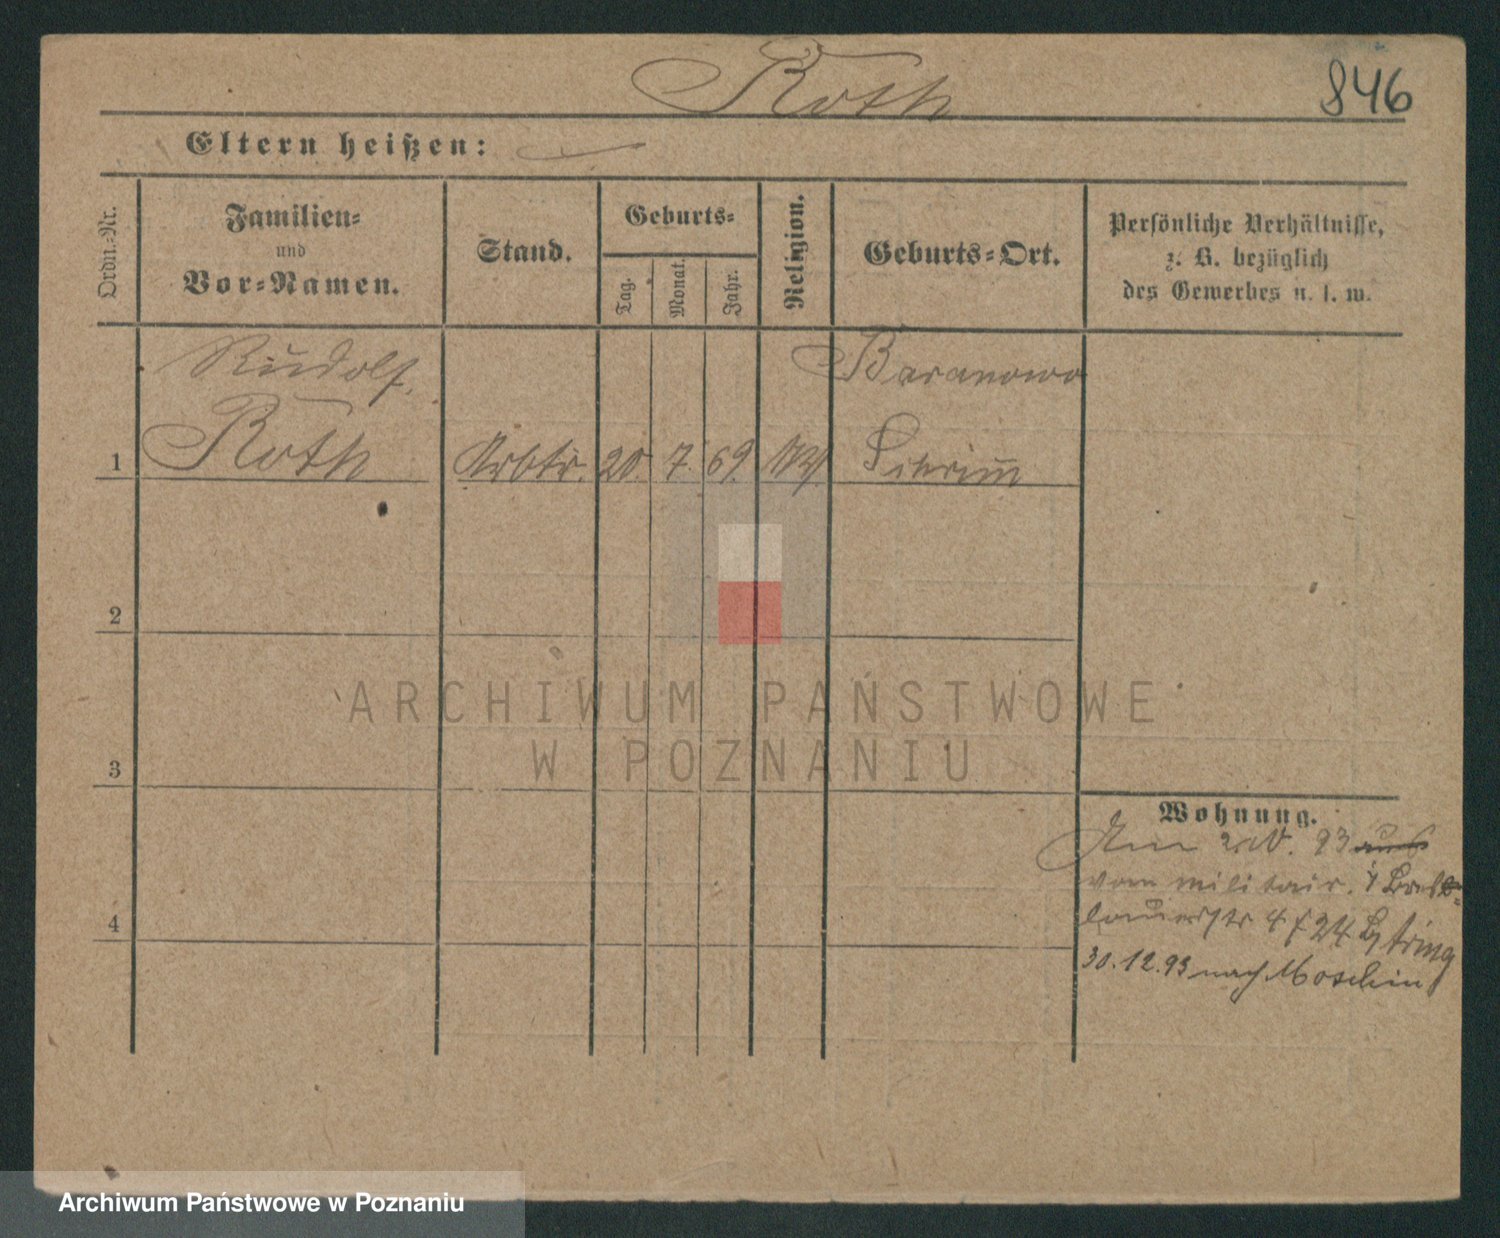 Roth
846
Eltern heißen:
Ordn.-Nr.
Familien-
und
Vor-Namen.
Stand.
Geburts-
Tag.
Monat.
Jahr.
Religion.
Geburts-Ort.
Persönliche Verhältnisse,
z. B. bezüglich
des Gewerbes u. s. w.
Rudolf
Baranowo
1 Roth Arbtr. 20. 7. 69. Schrimm
2
3
4
Wohnung.
93 aus
vom militair.
4
30.12.93 nach Moschin
ARCHIWUM PAŃSTWOWE
W POZNANIU
Archiwum Państwowe w Poznaniu